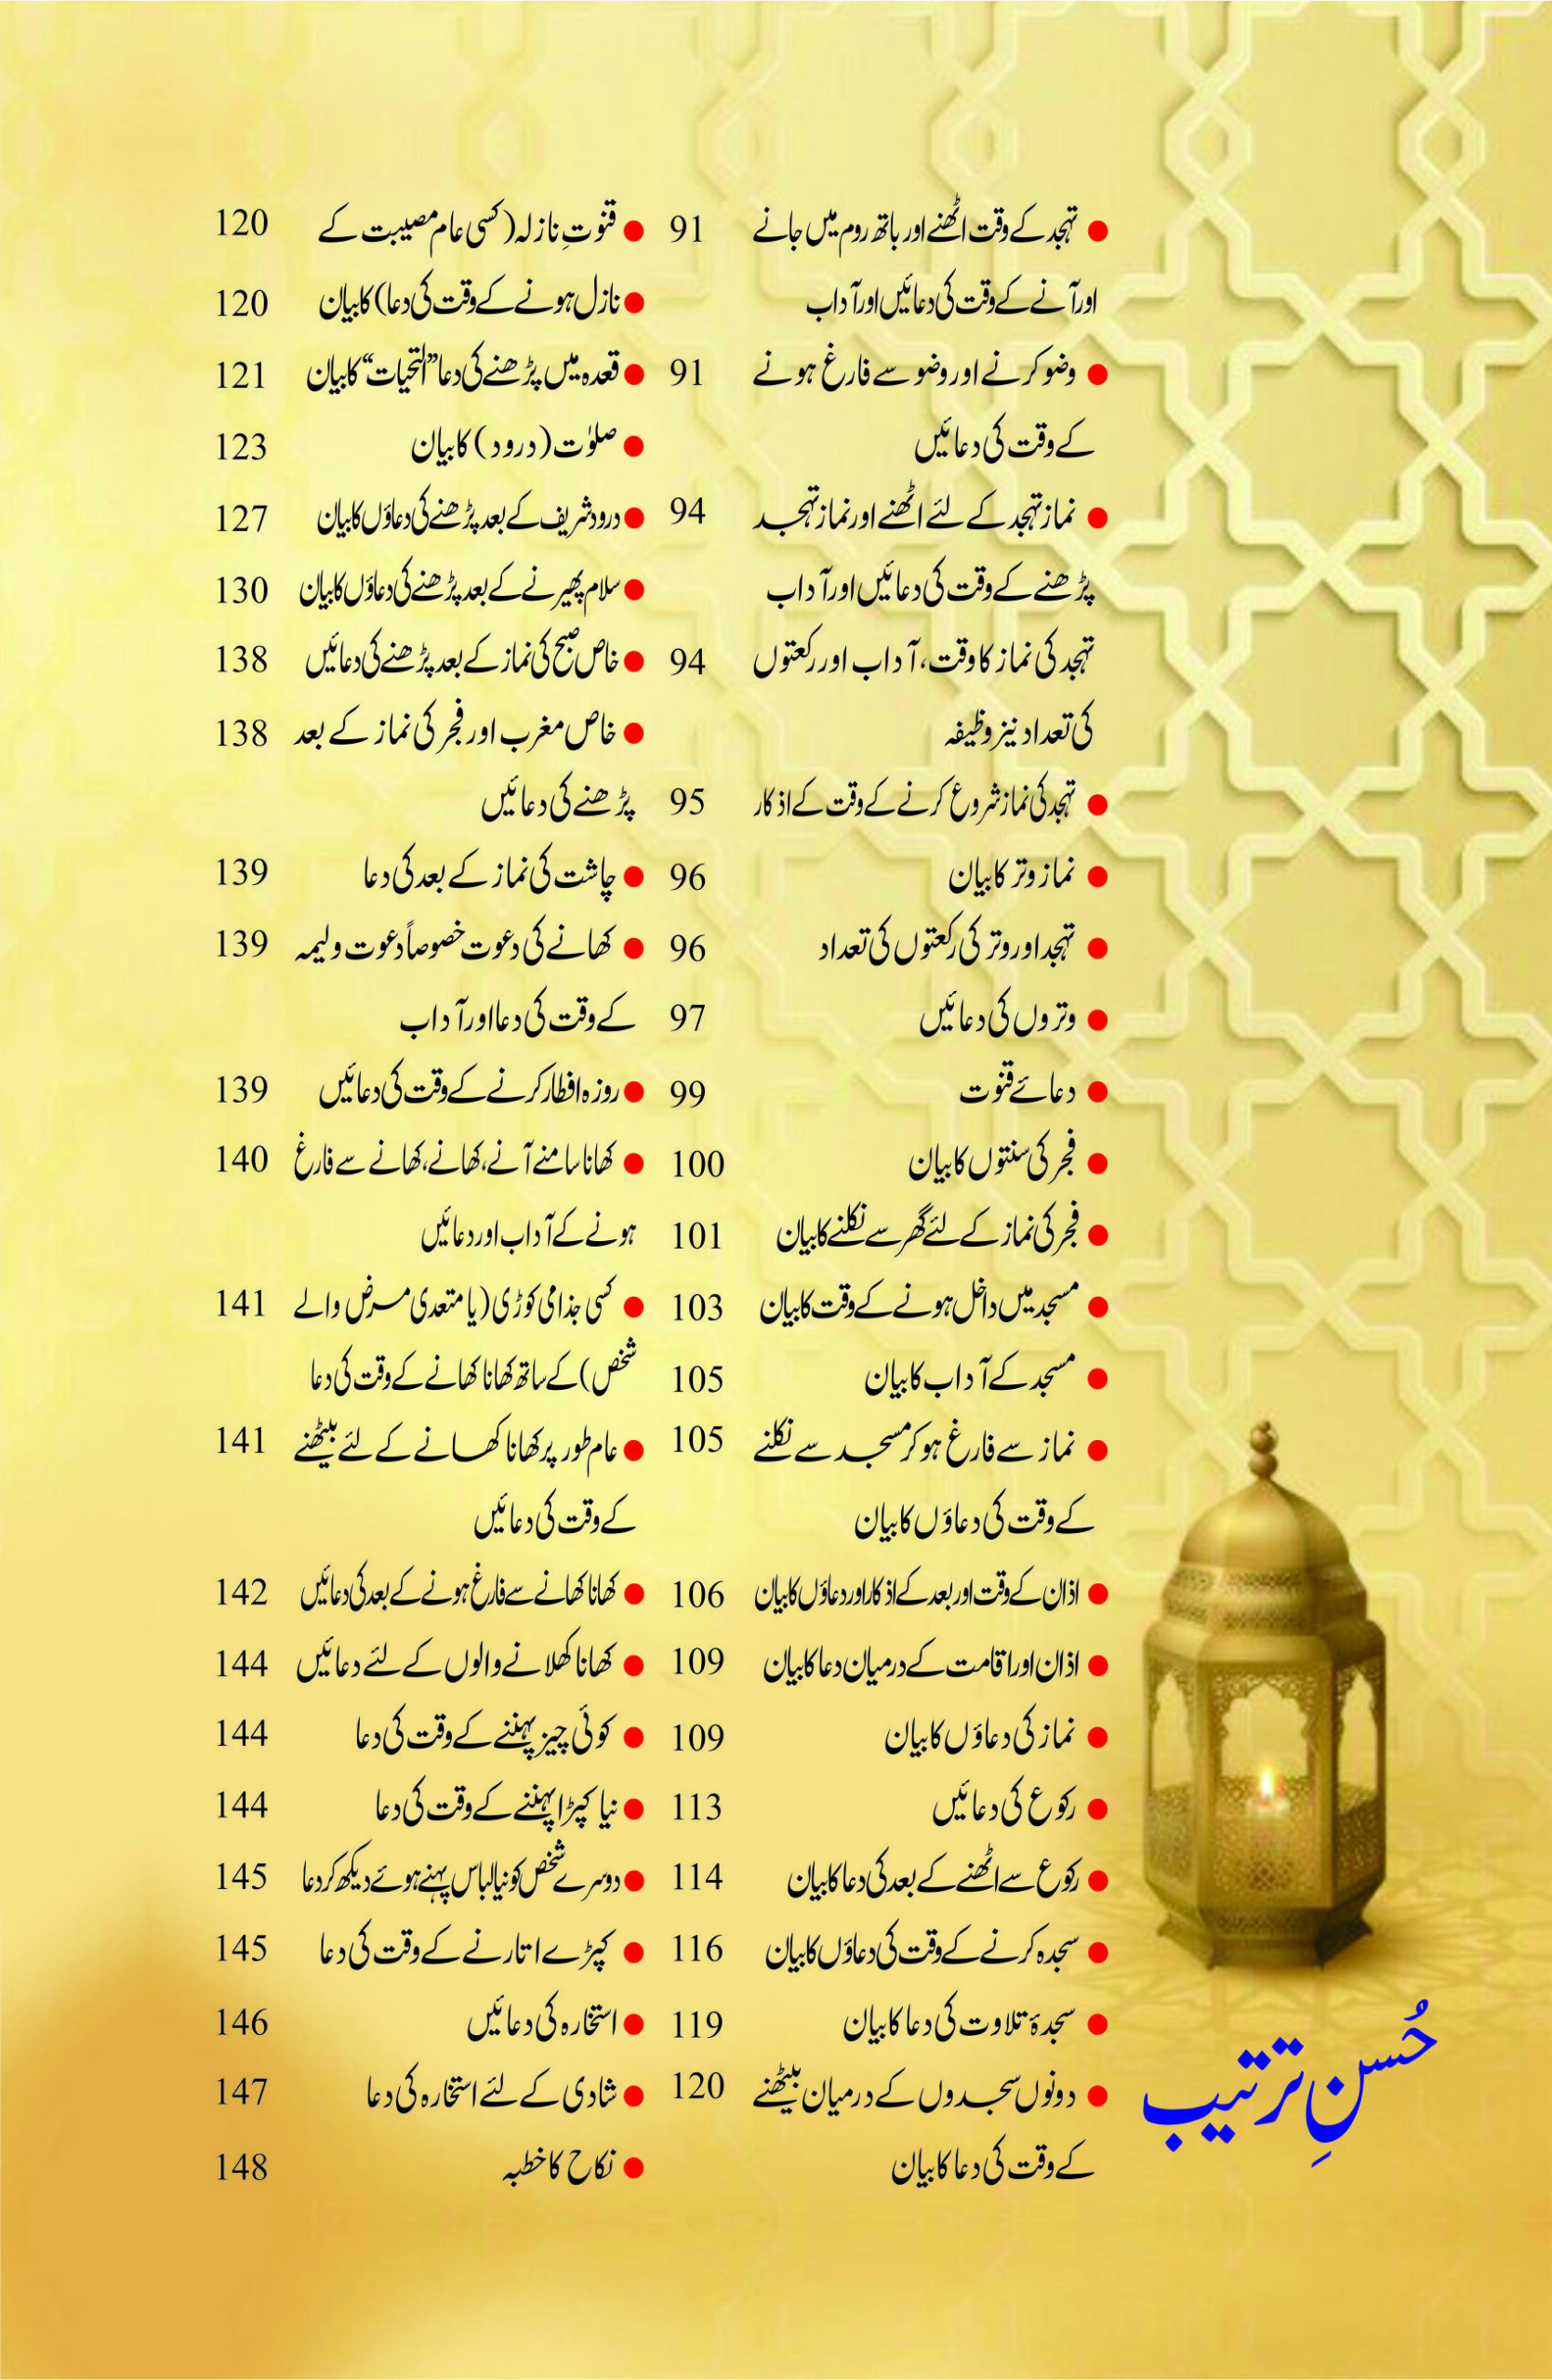 تہجد کے وقت اٹھنے اور باتھ روم میں جانے 91
اور آنے کے وقت کی دعائیں اور آداب
وضو کرنے اور وضو سے فارغ ہونے 91
کے وقت کی دعائیں
نماز تہجد کے لئے اٹھنے اور نماز تہجد 94
پڑھنے کے وقت کی دعائیں اور آداب
تہجد کی نماز کا وقت، آداب اور رکعتوں 94
کی تعداد نیز وظیفہ
تہجد کی نماز شروع کرنے کے وقت کے اذکار 95
نماز وتر کا بیان 96
تہجد اور وتر کی رکعتوں کی تعداد 96
وتروں کی دعائیں 97
دعائے قنوت 99
فجر کی سنتوں کا بیان 100
فجر کی نماز کے لئے گھر سے نکلنے کا بیان 101
مسجد میں داخل ہونے کے وقت کا بیان 103
مسجد کے آداب کا بیان 105
نماز سے فارغ ہو کر مسجد سے نکلنے 105
کے وقت کی دعاؤں کا بیان
اذان کے وقت اور بعد کے اذکار اور دعاؤں کا بیان 106
اذان اور اقامت کے درمیان دعا کا بیان 109
نماز کی دعاؤں کا بیان 109
رکوع کی دعائیں 113
رکوع سے اٹھنے کے بعد کی دعا کا بیان 114
سجدہ کرنے کے وقت کی دعاؤں کا بیان 116
سجدۂ تلاوت کی دعا کا بیان 119
دونوں سجدوں کے درمیان بیٹھنے 120
کے وقت کی دعا کا بیان
قنوتِ نازلہ (کسی عام مصیبت کے 120
نازل ہونے کے وقت کی دعا) کا بیان 120
قعدہ میں پڑھنے کی دعا ”التحیات“ کا بیان 121
صلوٰت (درود) کا بیان 123
درود شریف کے بعد پڑھنے کی دعاؤں کا بیان 127
سلام پھیرنے کے بعد پڑھنے کی دعاؤں کا بیان 130
خاص صبح کی نماز کے بعد پڑھنے کی دعائیں 138
خاص مغرب اور فجر کی نماز کے بعد 138
پڑھنے کی دعائیں
چاشت کی نماز کے بعد کی دعا 139
کھانے کی دعوت خصوصاً دعوت ولیمہ 139
کے وقت کی دعا اور آداب
روزہ افطار کرنے کے وقت کی دعائیں 139
کھانا سامنے آنے، کھانے، کھانے سے فارغ 140
ہونے کے آداب اور دعائیں
کسی جذامی کوڑی (یا متعدی مرض والے 141
شخص) کے ساتھ کھانا کھانے کے وقت کی دعا
عام طور پر کھانا کھانے کے لئے بیٹھنے 141
کے وقت کی دعائیں
کھانا کھانے سے فارغ ہونے کے بعد کی دعائیں 142
کھانا کھلانے والوں کے لئے دعائیں 144
کوئی چیز پہننے کے وقت کی دعا 144
نیا کپڑا پہننے کے وقت کی دعا 144
دوسرے شخص کو نیا لباس پہنے ہوئے دیکھ کر دعا 145
کپڑے اتارنے کے وقت کی دعا 145
استخارہ کی دعائیں 146
شادی کے لئے استخارہ کی دعا 147
نکاح کا خطبہ 148
حُسنِ ترتیب